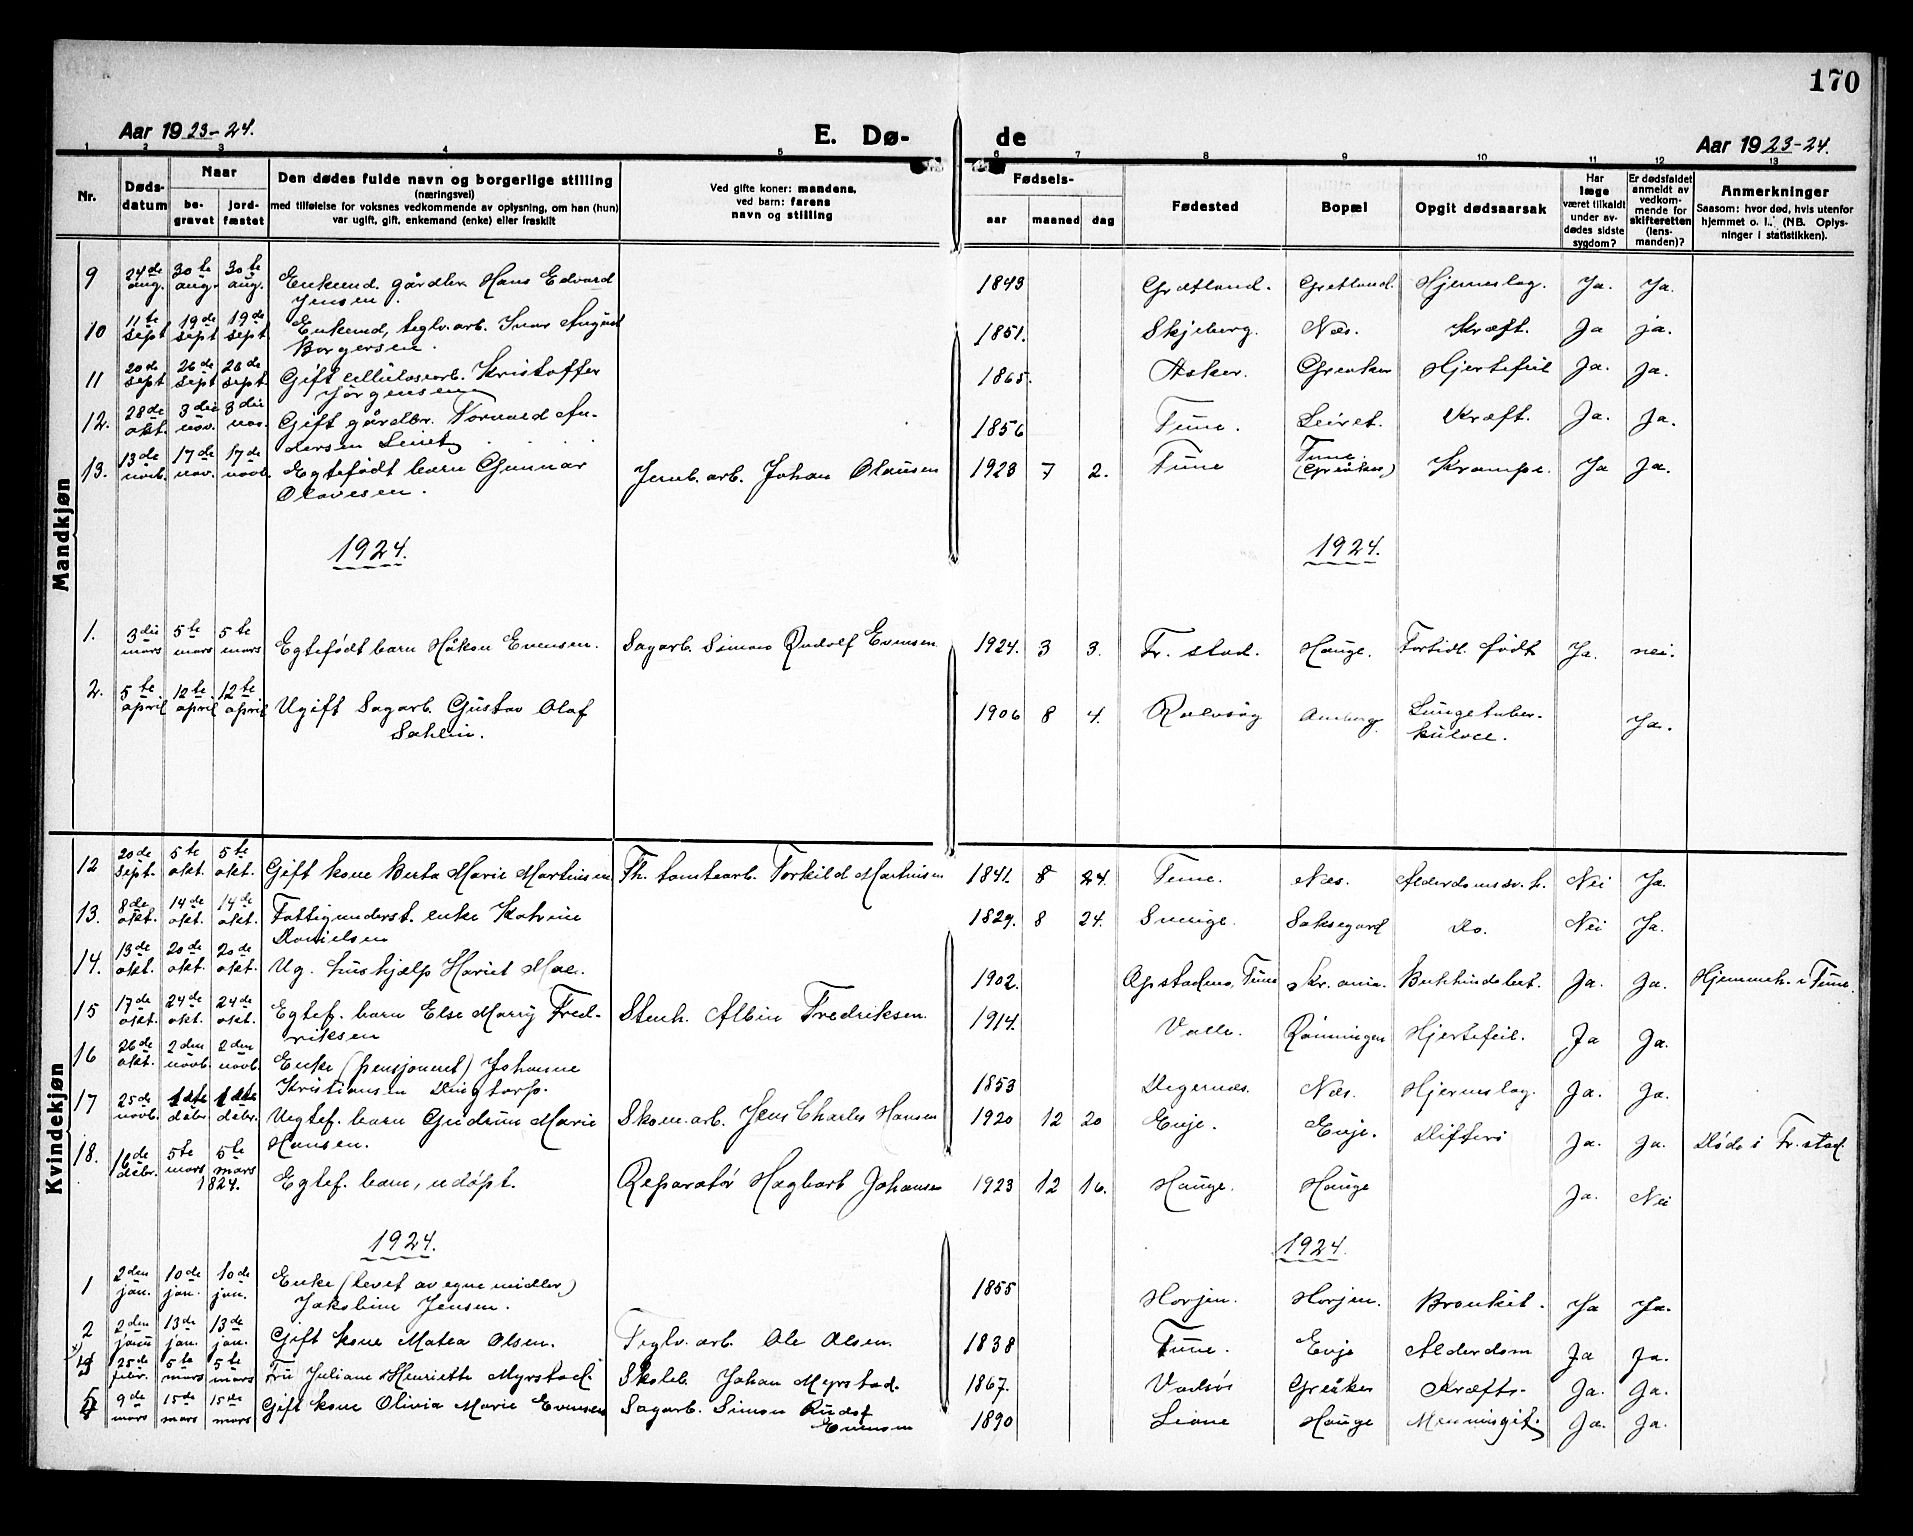 170
Aar 1923-24.
E. Dø-
de
Aar 1923-24.
1 2 3 4 5 6 7 8 9 10 11 12 13
Nr.
Døds-
datum
Naar
be-
gravet
jord-
fæstet
Den dødes fulde navn og borgerlige stilling
(næringsvei)
med tilføielse for voksnes vedkommende av oplysning, om han (hun)
var ugift, gift, enkemand (enke) eller fraskilt
Ved gifte koner: mandens,
ved barn: farens
navn og stilling
Fødsels-
aar maaned dag
Fødested
Bopæl
Opgit dødsaarsak
Har
læge
været tilkaldt
under av-
dødes sidste
sygdom?
Er dødsfaldet
anmeldt av
vedkom-
mende for
skifteretten
(lens-
manden)?
Anmerkninger
Saasom: hvor død, hvis utenfor
hjemmet o. l.. (NB. Oplys-
ninger i statistikken).
Mandkjøn
9 24de aug. 30te aug. 30te aug. Enkemd. gårdbr. Hans Edvard Jensen. 1843 Grætland. Gretland. Hjerneslag. Ja. Ja.
10 11te sept 19de sept 19de sept Enkemd, teglv. arb. Ivar August Borgersen. 1851. Skjeberg. Næs. Kræft. Ja ja.
11 20de sept 26de sept 26de sept. Gift cellulosearb. Kristoffer Jørgensen 1865. Asker. Greåker Hjertefeil Ja. Ja.
12. 28de okt. 3die nov. 3die nov. Gift gårdbr. Torvald Andersen Leiret 1856 Tune. Leiret. Kræft. Ja. Ja.
13. 13de novb. 17de nov. 17de novb. Egtefødt barn Gunnar Olavesen. Jernb. arb. Johan Olausen 1923 7 2. Tune Tune. (Greåker) Krampe. Ja Ja.
1924.
1924.
1. 3die mars 5te mars 5te mars Egtefødt barn Håkon Evensen. Sagarb. Simon Rudolf Evensen 1924. 3 3. Fr. stad. Hauge. Fortidl. født Ja. nei.
2. 5te april 12te april 12te april Ugift Sagarb. Gustav Olaf Sahlin. 1906 8 4. Rolvsøy Lungetuber-
kulose. Ja.
Kvindekjøn
12 20de sept. 5te okt. 5te okt. Gift kone Berta Marie Martinsen Fh. tomtearb. Torkild Martinsen 1841. 8 24. Tune. Næs. Alderdomssv. h. Nei Ja.
13. 8de okt. 14de okt. 14de okt. Fattigunderst. enke Katrine Danielsen 1829. 8 24. Sverige. Saksegard Do. Nei Ja.
14. 13de okt. 20de okt. 20de okt. Ug. hushjælp Hariet Moe. 1902. Opstadmo, Tune Kr. ania. Ja. Ja. Hjemmeh. i Tune.
15 17de okt. 24de okt. 24de okt. Egtef. barn Else Marry Fred-
riksen Stenh. Albin Fredriksen. 1914. Valle. Rønningen Hjertefeil. Ja Ja.
16 26de okt. 2den novb. 2den novb. Enke (pensjonert) Johanne Kristiansen Dingtorp. 1853 Degernæs. Næs. Hjerneslag. Ja. Ja.
17 25de novb. 1ste debr. 1ste debr. Uegtef. barn Gudrun Marie Hansen. Skom. arb. Jens Charles Hansen 1920 12 20 Enje. Enje. Difteri Ja. Ja. Døde i Fr. stad.
18. 16de debr. 5te mars 5te mars 1824. Egtef. barn, udøpt. Reparatør Hagbart Johansen 1923 12 16. Hauge. Hauge Ja. Nei
1924.
1924.
1 2den jan. 10de jan. 10de jan. Enke (levet av egne midler) Jakobine Jensen. 1855 Horjen. Horjen. Bronkit. Ja Ja.
2 2den janu 13de jan. 13de jan. Gift kone Matea Olsen. Teglv. arb. Ole Olsen. 1838 Tune. Enje Alderdom Ja Ja.
25de febr. 5te mars 5te mars Fru Juliane Henriette Myrstad. Skoleb. Johan Myrstad. 1867. Vadsö Greåker Kræft. Ja. Ja.
9de mars 15de mars 15de mars Gift kone Olivia Marie Evensen Sagarb. Simon Rudolf Evensen 1890 Hauge Menningit. Ja. Ja.